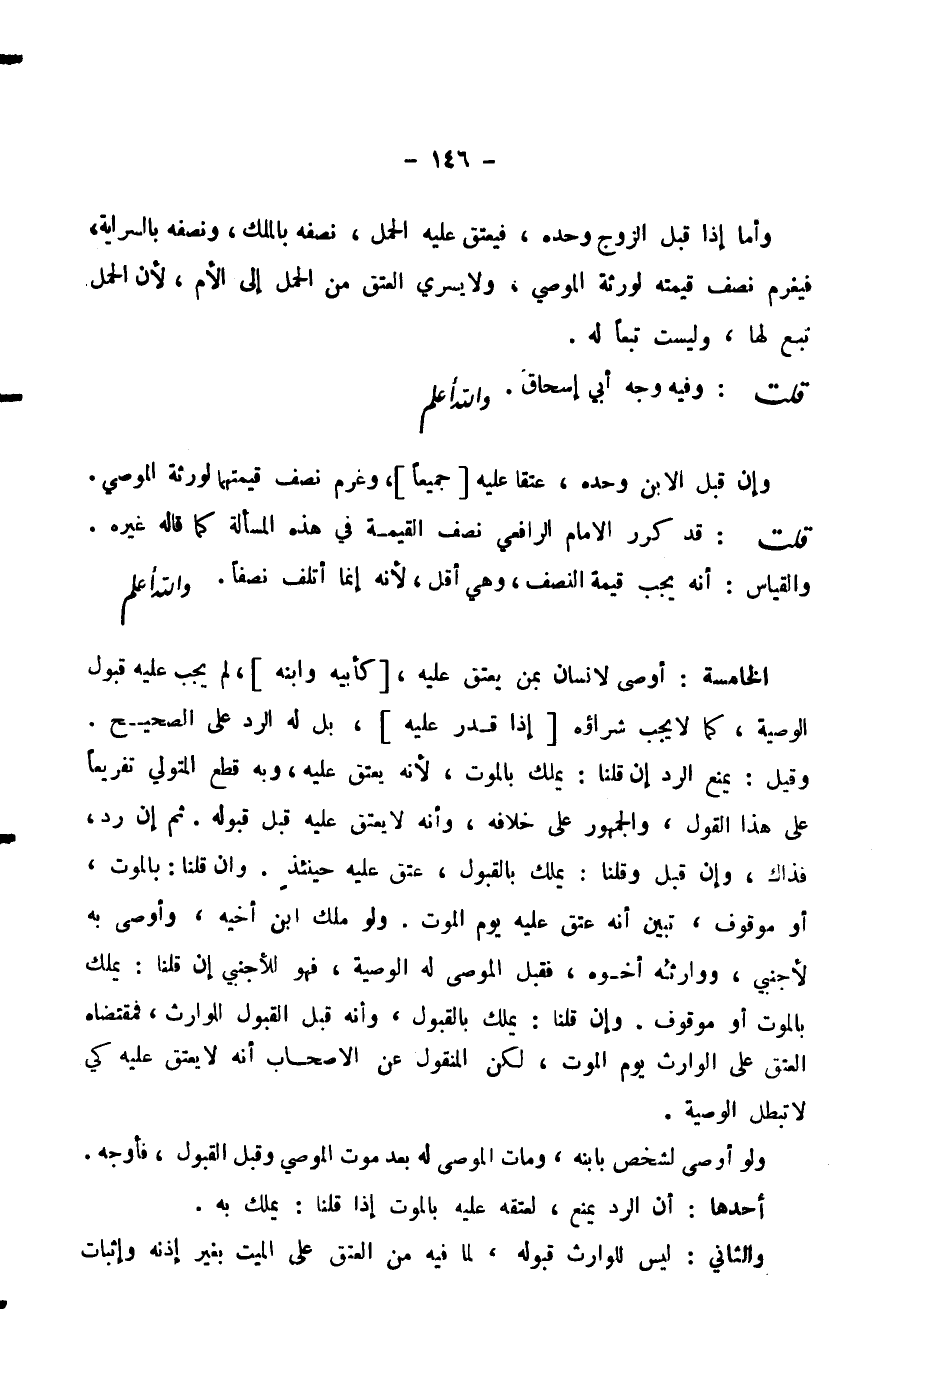 - ١٤٦ -
وأما إذا قبل الزوج وحده ، فيعتق عليه الحمل ، نصفه بالملك ، ونصفه بالسراية،
فيغرم نصف قيمته لورثة الموصي ، ولايسري العتق من الحمل إلى الأم ، لأن الحمل
تبـع لها ، وليست تبعاً له .
قلت : وفيه وجه أبي إسحاق . والله أعلم
وإن قبل الابن وحده ، عتقا عليه [ جميعاً ]، وغرم نصف قيمتها لورثة الموصي .
قلت : قد كرر الامام الرافعي نصف القيمـة في هذه المسألة كما قاله غيره .
والقياس : أنه يجب قيمة النصف ، وهي أقل ، لأنه إنما أتلف نصفاً . والله أعلم
الخامسة : أوصى لانسان بمن يعتق عليه ، [ كأبيه وابنه ]، لم يجب عليه قبول
الوصية ، كما لايجب شراؤه [ إذا قـدر عليه ] ، بل له الرد على الصحيـح .
وقيل : يمنع الرد إن قلنا : يملك بالموت ، لأنه يعتق عليه ، وبه قطع المتولي تفريعاً
على هذا القول ، والجمهور على خلافه ، وأنه لايعتق عليه قبل قبوله . ثم إن رد ،
فذاك ، وإن قبل وقلنا : يملك بالقبول ، عتق عليه حينئذٍ . وان قلنا : بالموت ،
أو موقوف ، تبين أنه عتق عليه يوم الموت . ولو ملك ابن أخيه ، وأوصى به
لأجنبي ، ووارثه أخـوه ، فقبل الموصى له الوصية ، فهو للأجنبي إن قلنا : يملك
بالموت أو موقوف . وإن قلنا : يملك بالقبول ، وأنه قبل القبول للوارث ، فمقتضاه
العتق على الوارث يوم الموت ، لكن المنقول عن الاصحـاب أنه لايعتق عليه كي
لاتبطل الوصية .
ولو أوصى لشخص بابنه ، ومات الموصى له بعد موت الموصي وقبل القبول ، فأوجه .
أحدها : أن الرد يمنع ، لعتقه عليه بالموت إذا قلنا : يملك به .
والثاني : ليس للوارث قبوله ، لما فيه من العتق على الميت بغير إذنه وإثبات